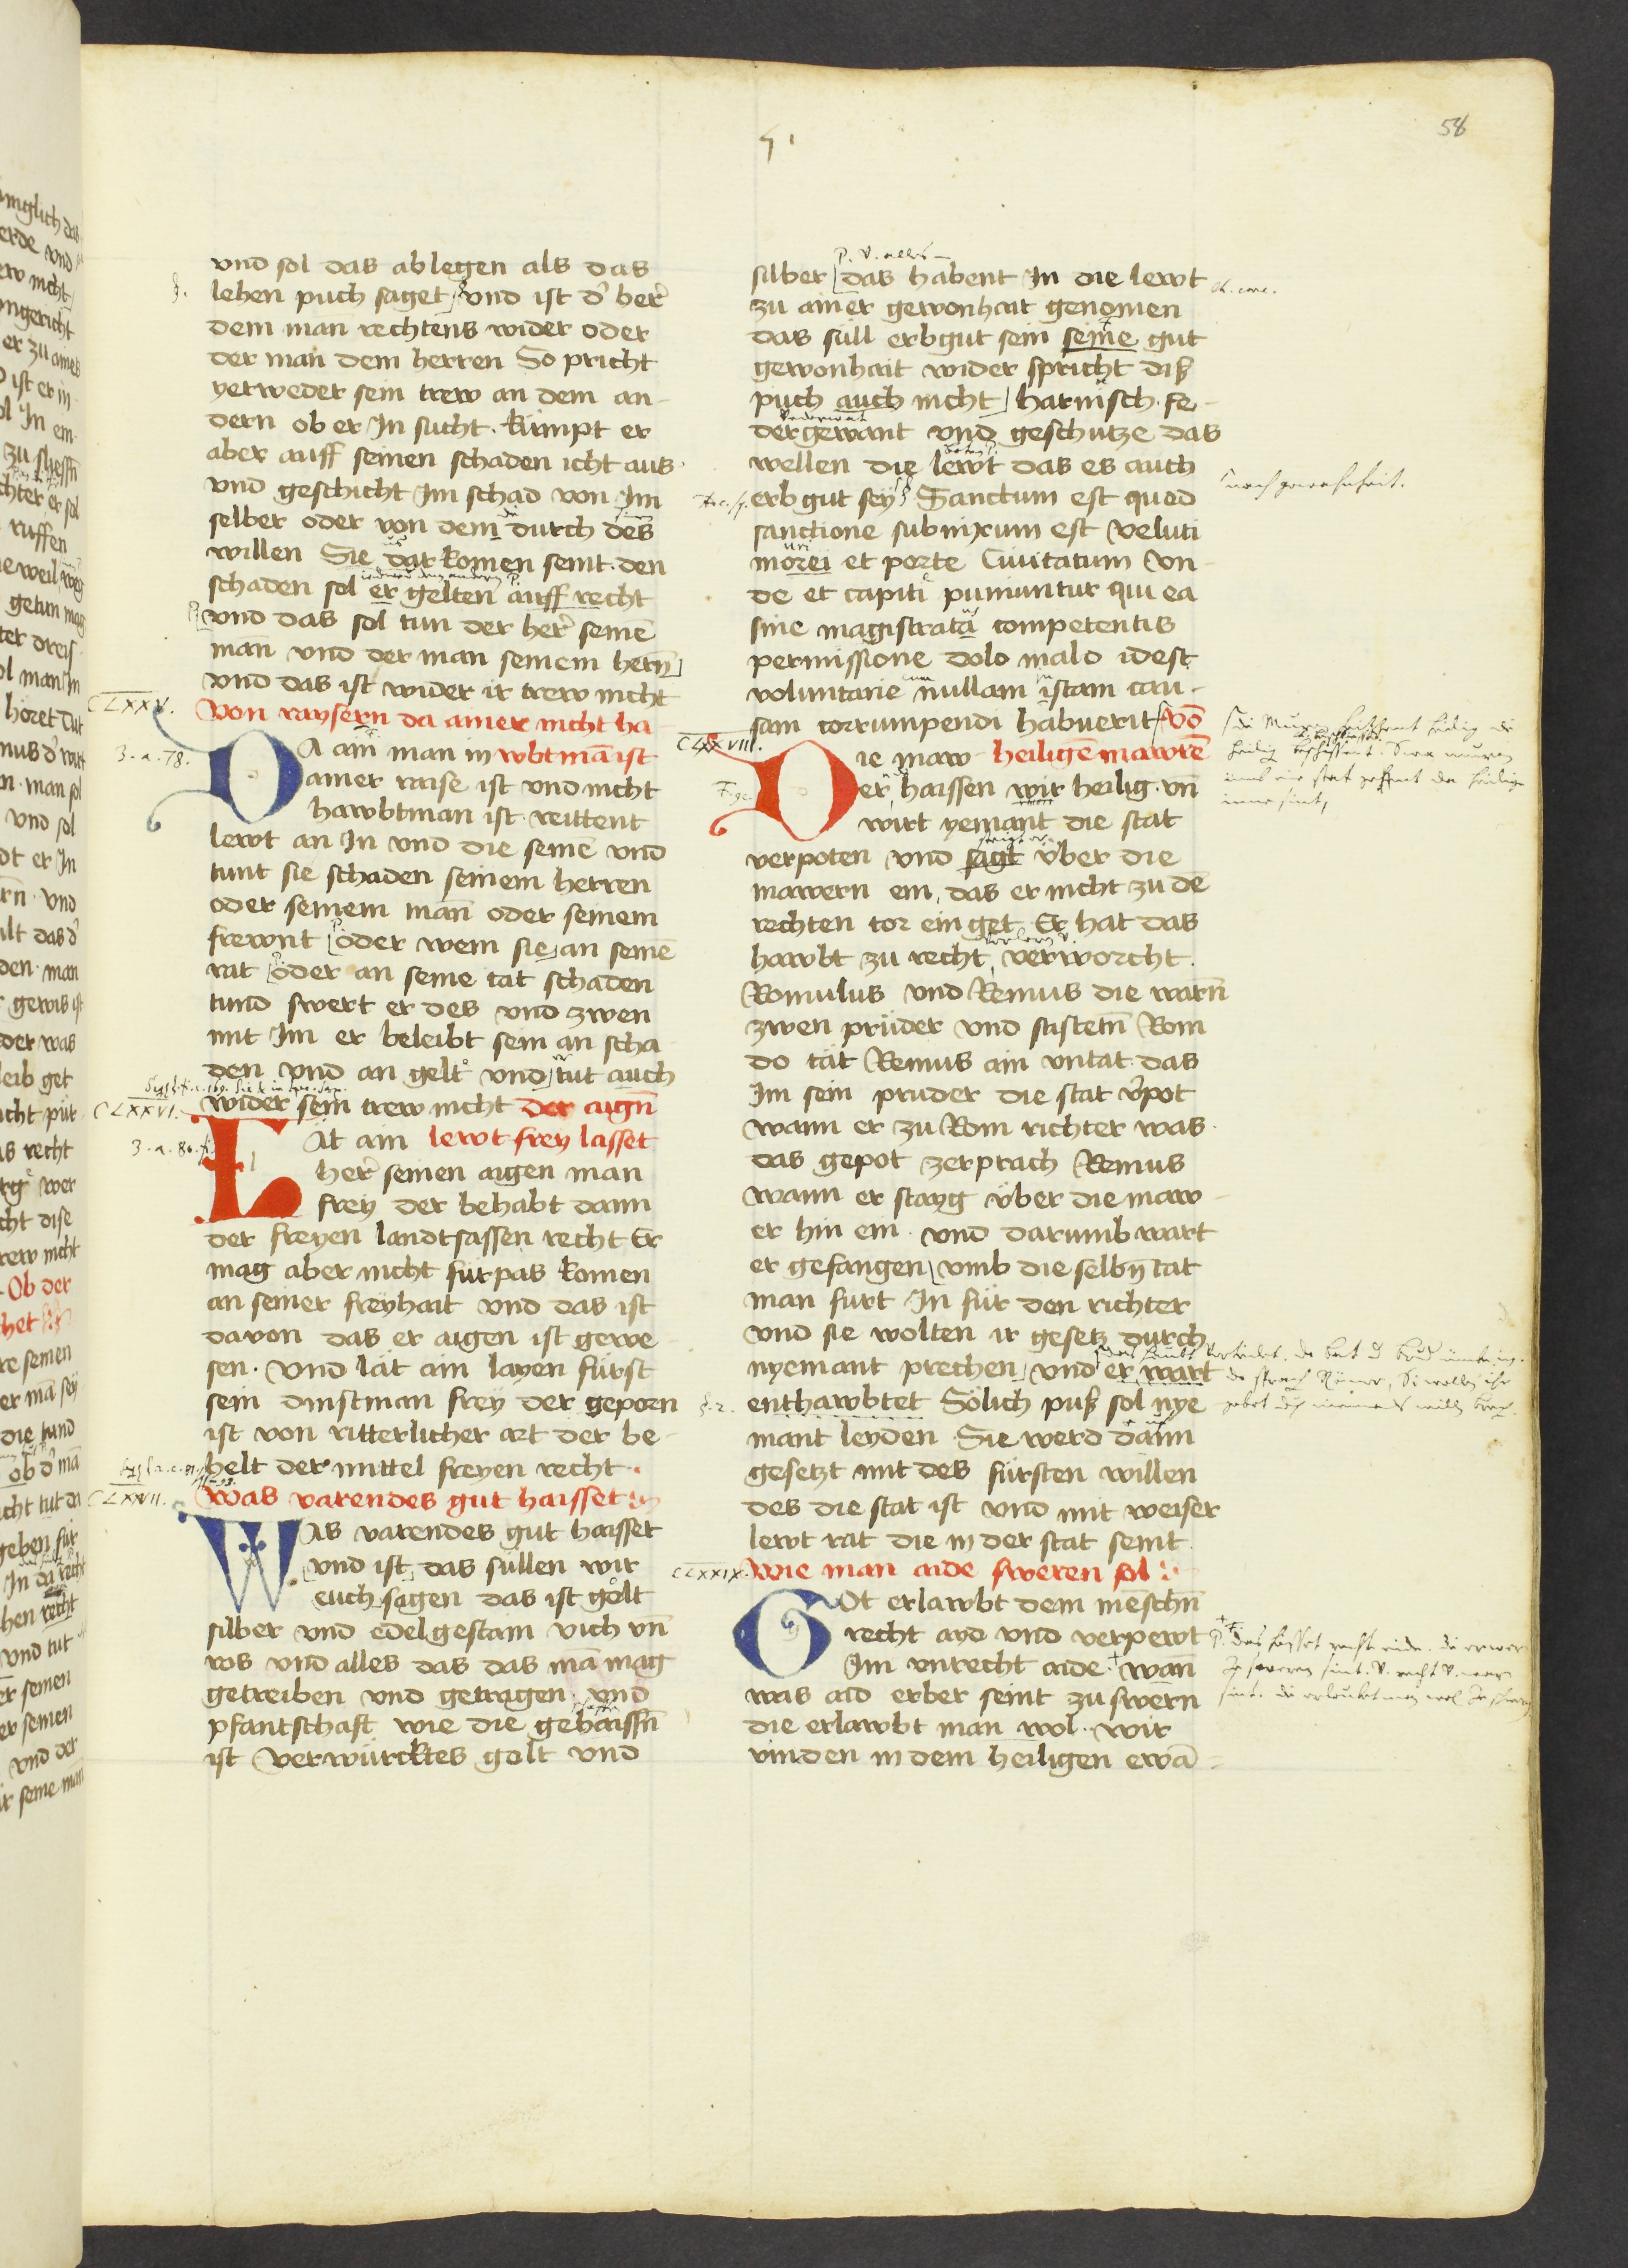 58
vnd sol das ablegen als das
lehen puch saget vnd ist d' her'
dem man rechtens wider oder
der man dem herren So pricht
yetweder sein trew an dem an-
dern ob er In sucht. kumpt er
aber auff seinen schaden icht aus
vnd geschicht Im schad von Im
selber oder von dem durch des
willen Sie dar komen seint. den
schaden sol er gelten auff recht
vnd das sol tun der her' seinē
mañ vnd der man seinem hern̄
vnd das ist wider ir trew nicht
CLXXV.
Von raysern da ainer nicht ha
3. a. 78.
DA ain man in wbtmā ist
ainer raise ist vnd nicht
hawbtman ist. reittent
lewt an In vnd die seinē vnd
tunt sie schaden seinem herren
oder seinem mañ oder seinem
frewnt oder wem sie an seinē
rat oder an seine tat schaden
tund swert er des vnd zwen
mit Im er beleibt sein an scha
den vnd an gelt vnd tut auch
CLXXVI.
wider sein trew nicht der aign̄
3. a. 80.
LAt ain lewt frey lasset
her' seinen aigen man
frey der behabt dann
der freyen landtsassen recht Er
mag aber nicht furpas komen
an seiner freyhait vnd das ist
davon das er aigen ist gewe
sen. vnd lát ain layen fürst
sein dinstman frey der geporn
ist von ritterlicher art der be-
helt der mittel freyen recht.
CLXXVII.
Was varendes gut haisset
WAs varendes gut haisset
vnd ist das süllen wir
euch sagen das ist golt
silber vnd edelgestain vich vn̄
ros vnd alles das das mā mag
getreiben vnd getragen vnd
pfantschaft wie die gehaissn̄
ist verwürcktes golt vnd
p. v. alles
silber das habent In die lewt
zu ainer gewonhait genomen
das süll erbgut sein seine gut
gewonhait wider spricht diß
puch auch nicht harnisch. Fe-
dergewant vnd geschutze das
wellen die lewt das es auch
erbgut sey Sanctum est quod
nach gewohnheit.
sanctione subnixum est veluti
morei et porte Ciuitatum Vn-
de et capiti puniuntur qui ea
sine magistrata competentis
permissione dolo malo idest
voluntarie nullam istam cau-
sam corrumpendi habuerit Vō
CLXXVIII.
DIe maw heilige mawrē
er haissen wir heilig. vn̄
wirt yemant die stat
verpoten vnd sagt v̈ber die
mawern ein, das er nicht zu dē
rechten tor ein get Er hat das
hawbt zu recht verworcht.
Romulus vnd Remus die warn̄
zwen prüder vnd stiftetn̄ Rom
do tát Remus ain vntat. das
Im sein pruder die stat v'pot
wann er zu Rom richter was.
das gepot zerprach Remus
wann er stayg v̈ber die maw
er hin ein. vnd darumb wart
er gefangen vmb die selbn̄ tat
man furt In für den richter
vnd sie wolten ir gesetz durch
nyemant prechen vnd er wart
enthawbtet Sölich puß sol nye
mant leyden Sie werd dann
gesetzt mit des fürsten willen
des die stat ist vnd mit weiser
lewt rat die in der stat seint.
CLXXIX.
Wie man aide sweren sol
GOt erlawbt dem menschn̄
recht ayd vnd verpewt
Im vnrecht aide wan̄
was aid erber seint zu swern
die erlawbt man wol. wir
vinden in dem heiligen ewā